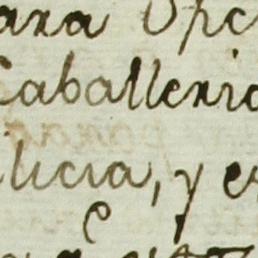 ara Ope
Caballeria
licia, y es